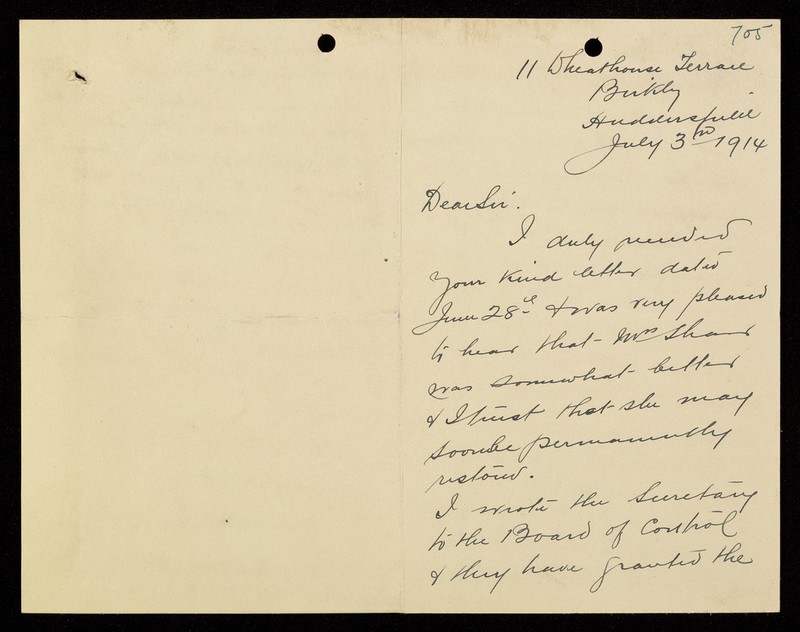 705
11 Wheathouse Terrace
Birkby
Huddersfield
July 3rd 1914
Dear Sir.
I duly received
your kind letter dated
June 28th & was very pleased
to hear that Mrs Shaw
was somewhat better
& I trust that she may
soon be permanently
restored.
I wrote the Secretary
to the Board of Control
& they have granted the